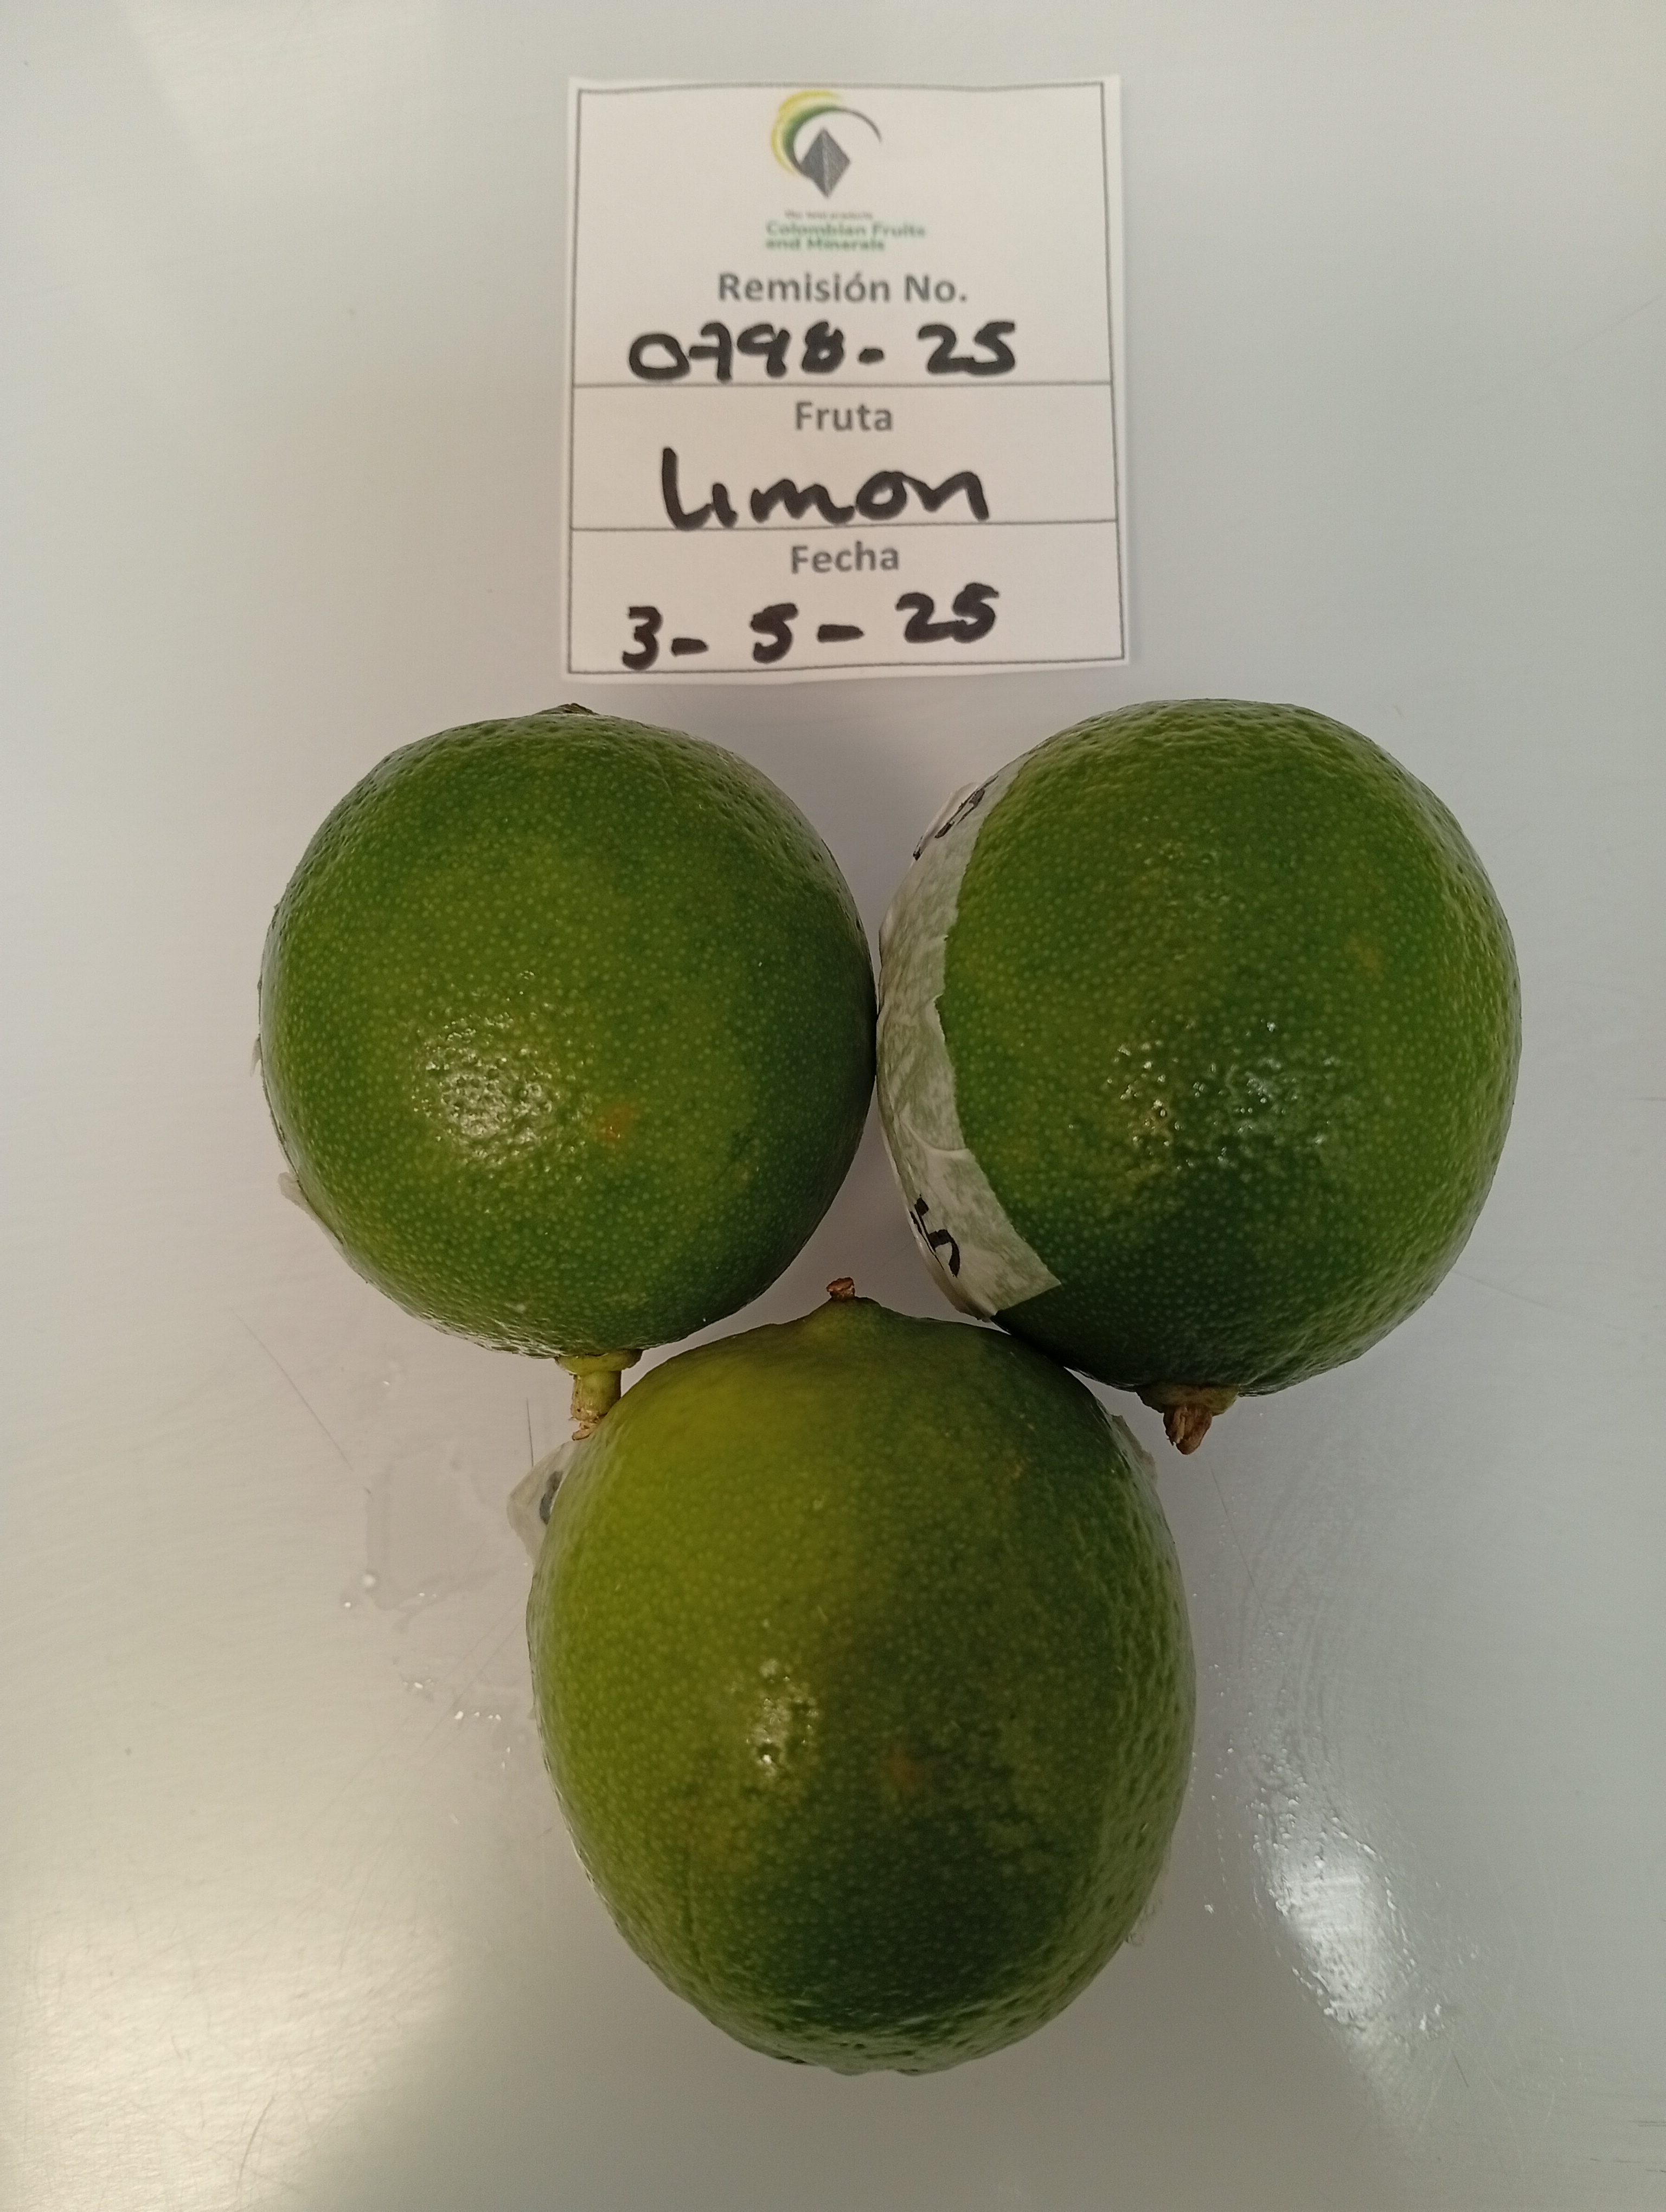 The best products
Colombian Fruits
and Minerals
Remisión No.
0798-25
Fruta
Limon
Fecha
3-5-25